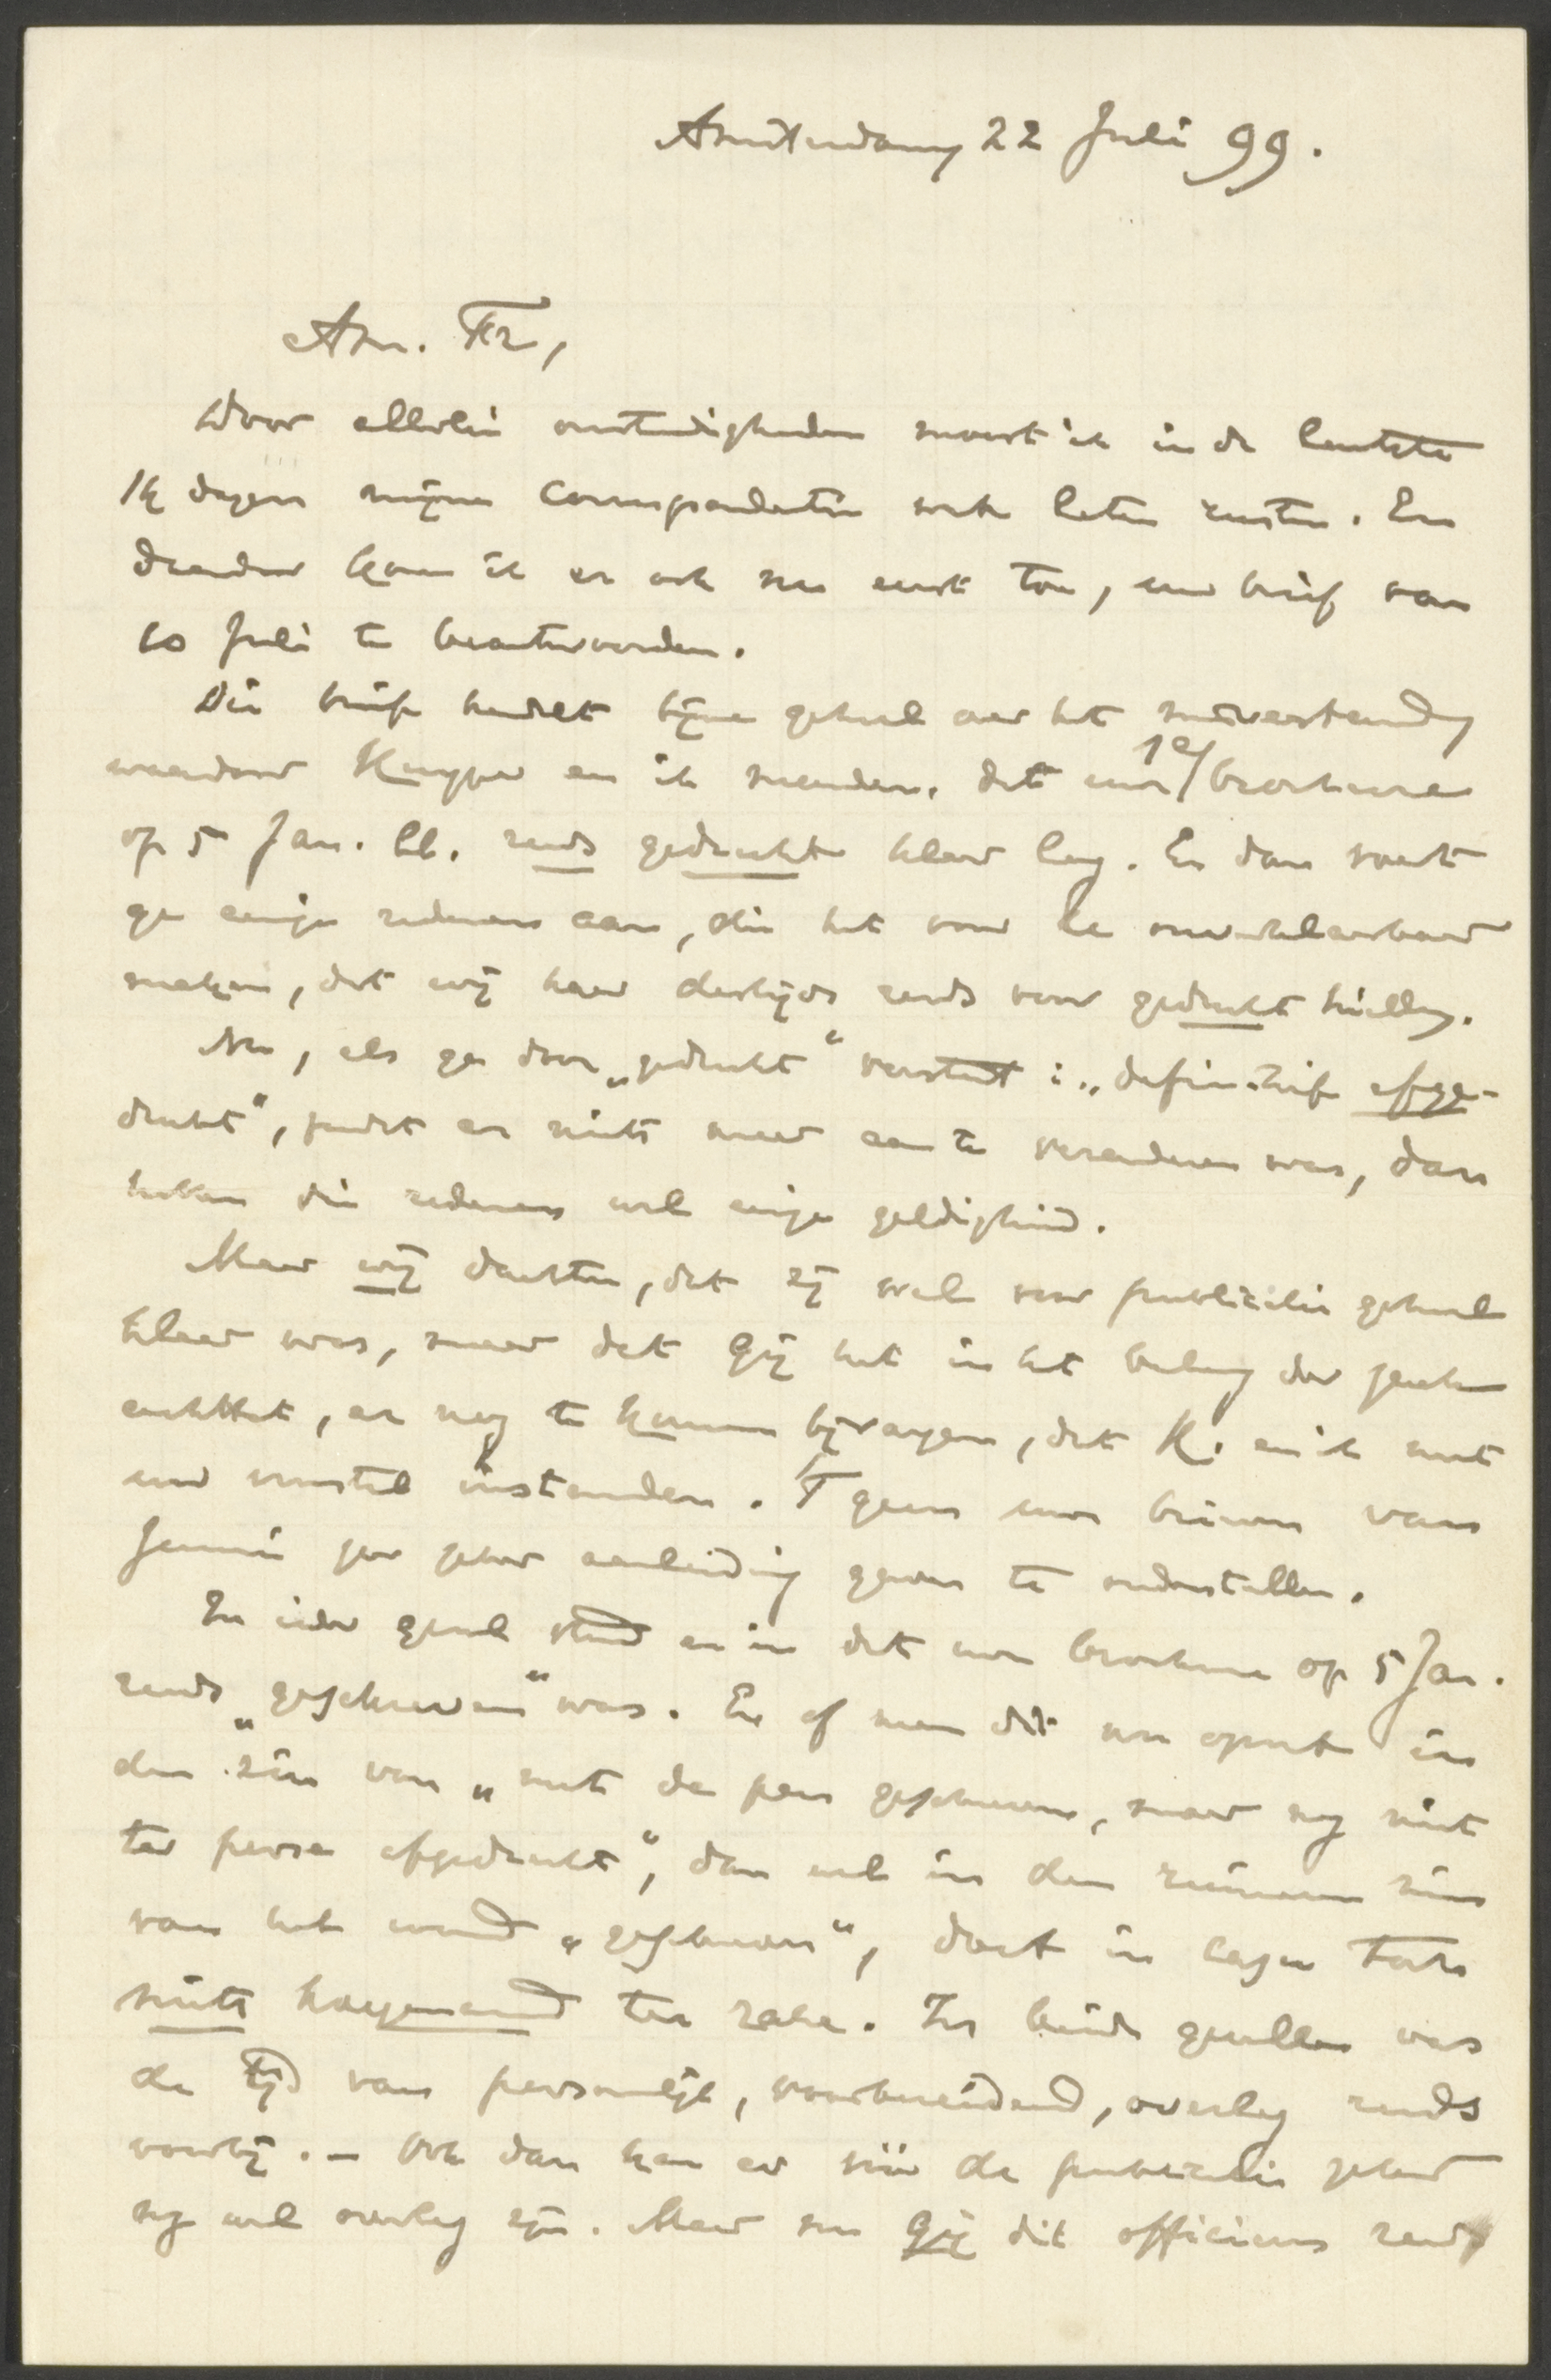 Amsterdam 22 Juli 99.
Am. Fr,
Door allerlei omstandigheden moest ik in de laatste
14 dagen mijne correspondentie wat laten rusten. En
daardoor kom ik er ook nu eerst toe, uw brief van
10 Juli te beantwoorden.
Die brief handelt bijna geheel over het misverstand
waardoor Kuyper en ik meenden, dat uwe 1e brochure
op 5 Jan. ll. reeds gedrukt klaar lag. En dan voert
ge eenige redenen aan, die het voor u onverklaarbaar
maken, dat wij haar destijds reeds voor gedrukt hielden.
Nu, als ge door „gedrukt" verstaat: „definitief afge-
drukt", zoodat er niets meer aan te veranderen was, dan
hebben die redenen wel eenige geldigheid.
Maar wij dachten, dat zij wel voor publicatie geheel
klaar was, maar dat Gij het in het belang der zaak
achttet, er nog te kunnen bijvoegen, dat K. en ik met
uw voorstel instemden. 'T geen uwe brieven van
Januari ons zeker aanleiding gaven te onderstellen.
In ieder geval stond er in dat uwe brochure op 5 Jan.
reeds „geschreven" was. En of men dit nu opvat in
den zin van „met de pen geschreven, maar nog niet
ter perse afgedrukt", dan wel in den ruimeren zin
van het woord „geschreven", doet in casu toch
niets hoegenaamd ter zake. In beide gevallen was
de tijd van persoonlijk, voorbereidend, overleg reeds
voorbij. – Ook dan kan er vóór de publicatie zeker
nog wel overleg zijn. Maar nu Gij dit officieus reeds